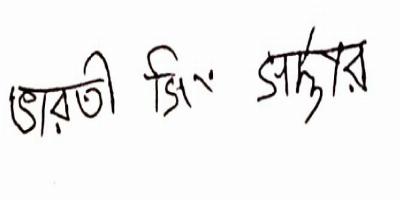 ভারতী সিং সর্দার